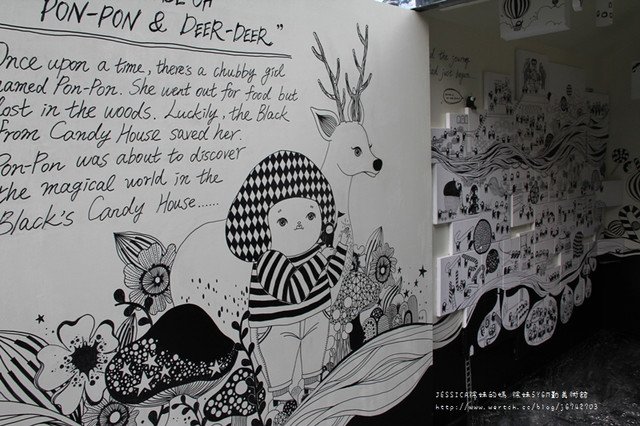 OF
PON-PON & DEER-DEER"
Once upon a time, there's a chubby girl
named Pon-Pon. She went out for food but
lost in the woods. Luckily, the Black
from Candy House saved her.
Pon-Pon was about to discover
the magical world in the
Black's Candy House......
d the journey
d just begun...
http://www.wretch.cc/blog/j6742703